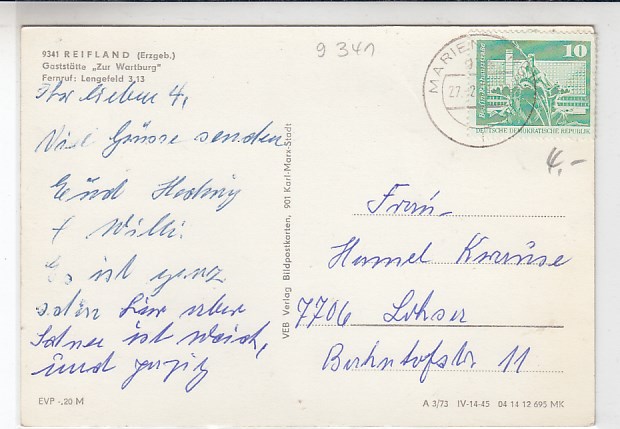 9341 REIFLAND (Erzgeb.)
Gaststätte „Zur Wartburg"
Fernruf: Lengefeld 3 13
9341
MARIEN
27.-2
Berlin, Rathausstraße
10
DEUTSCHE DEMOKRATISCHE REPUBLIK
4,-
Ihr lieben 4,
Viel Grüsse senden
Willi.
Es ist ganz
schön hier aber
ist weich,
und
VEB Verlag Bildpostkarten, 901 Karl-Marx-Stadt
Frau
Krause
7706
Bahnhofstr. 11
EVP -,20 M
A 3/73 IV-14-45 04 14 12 695 MK